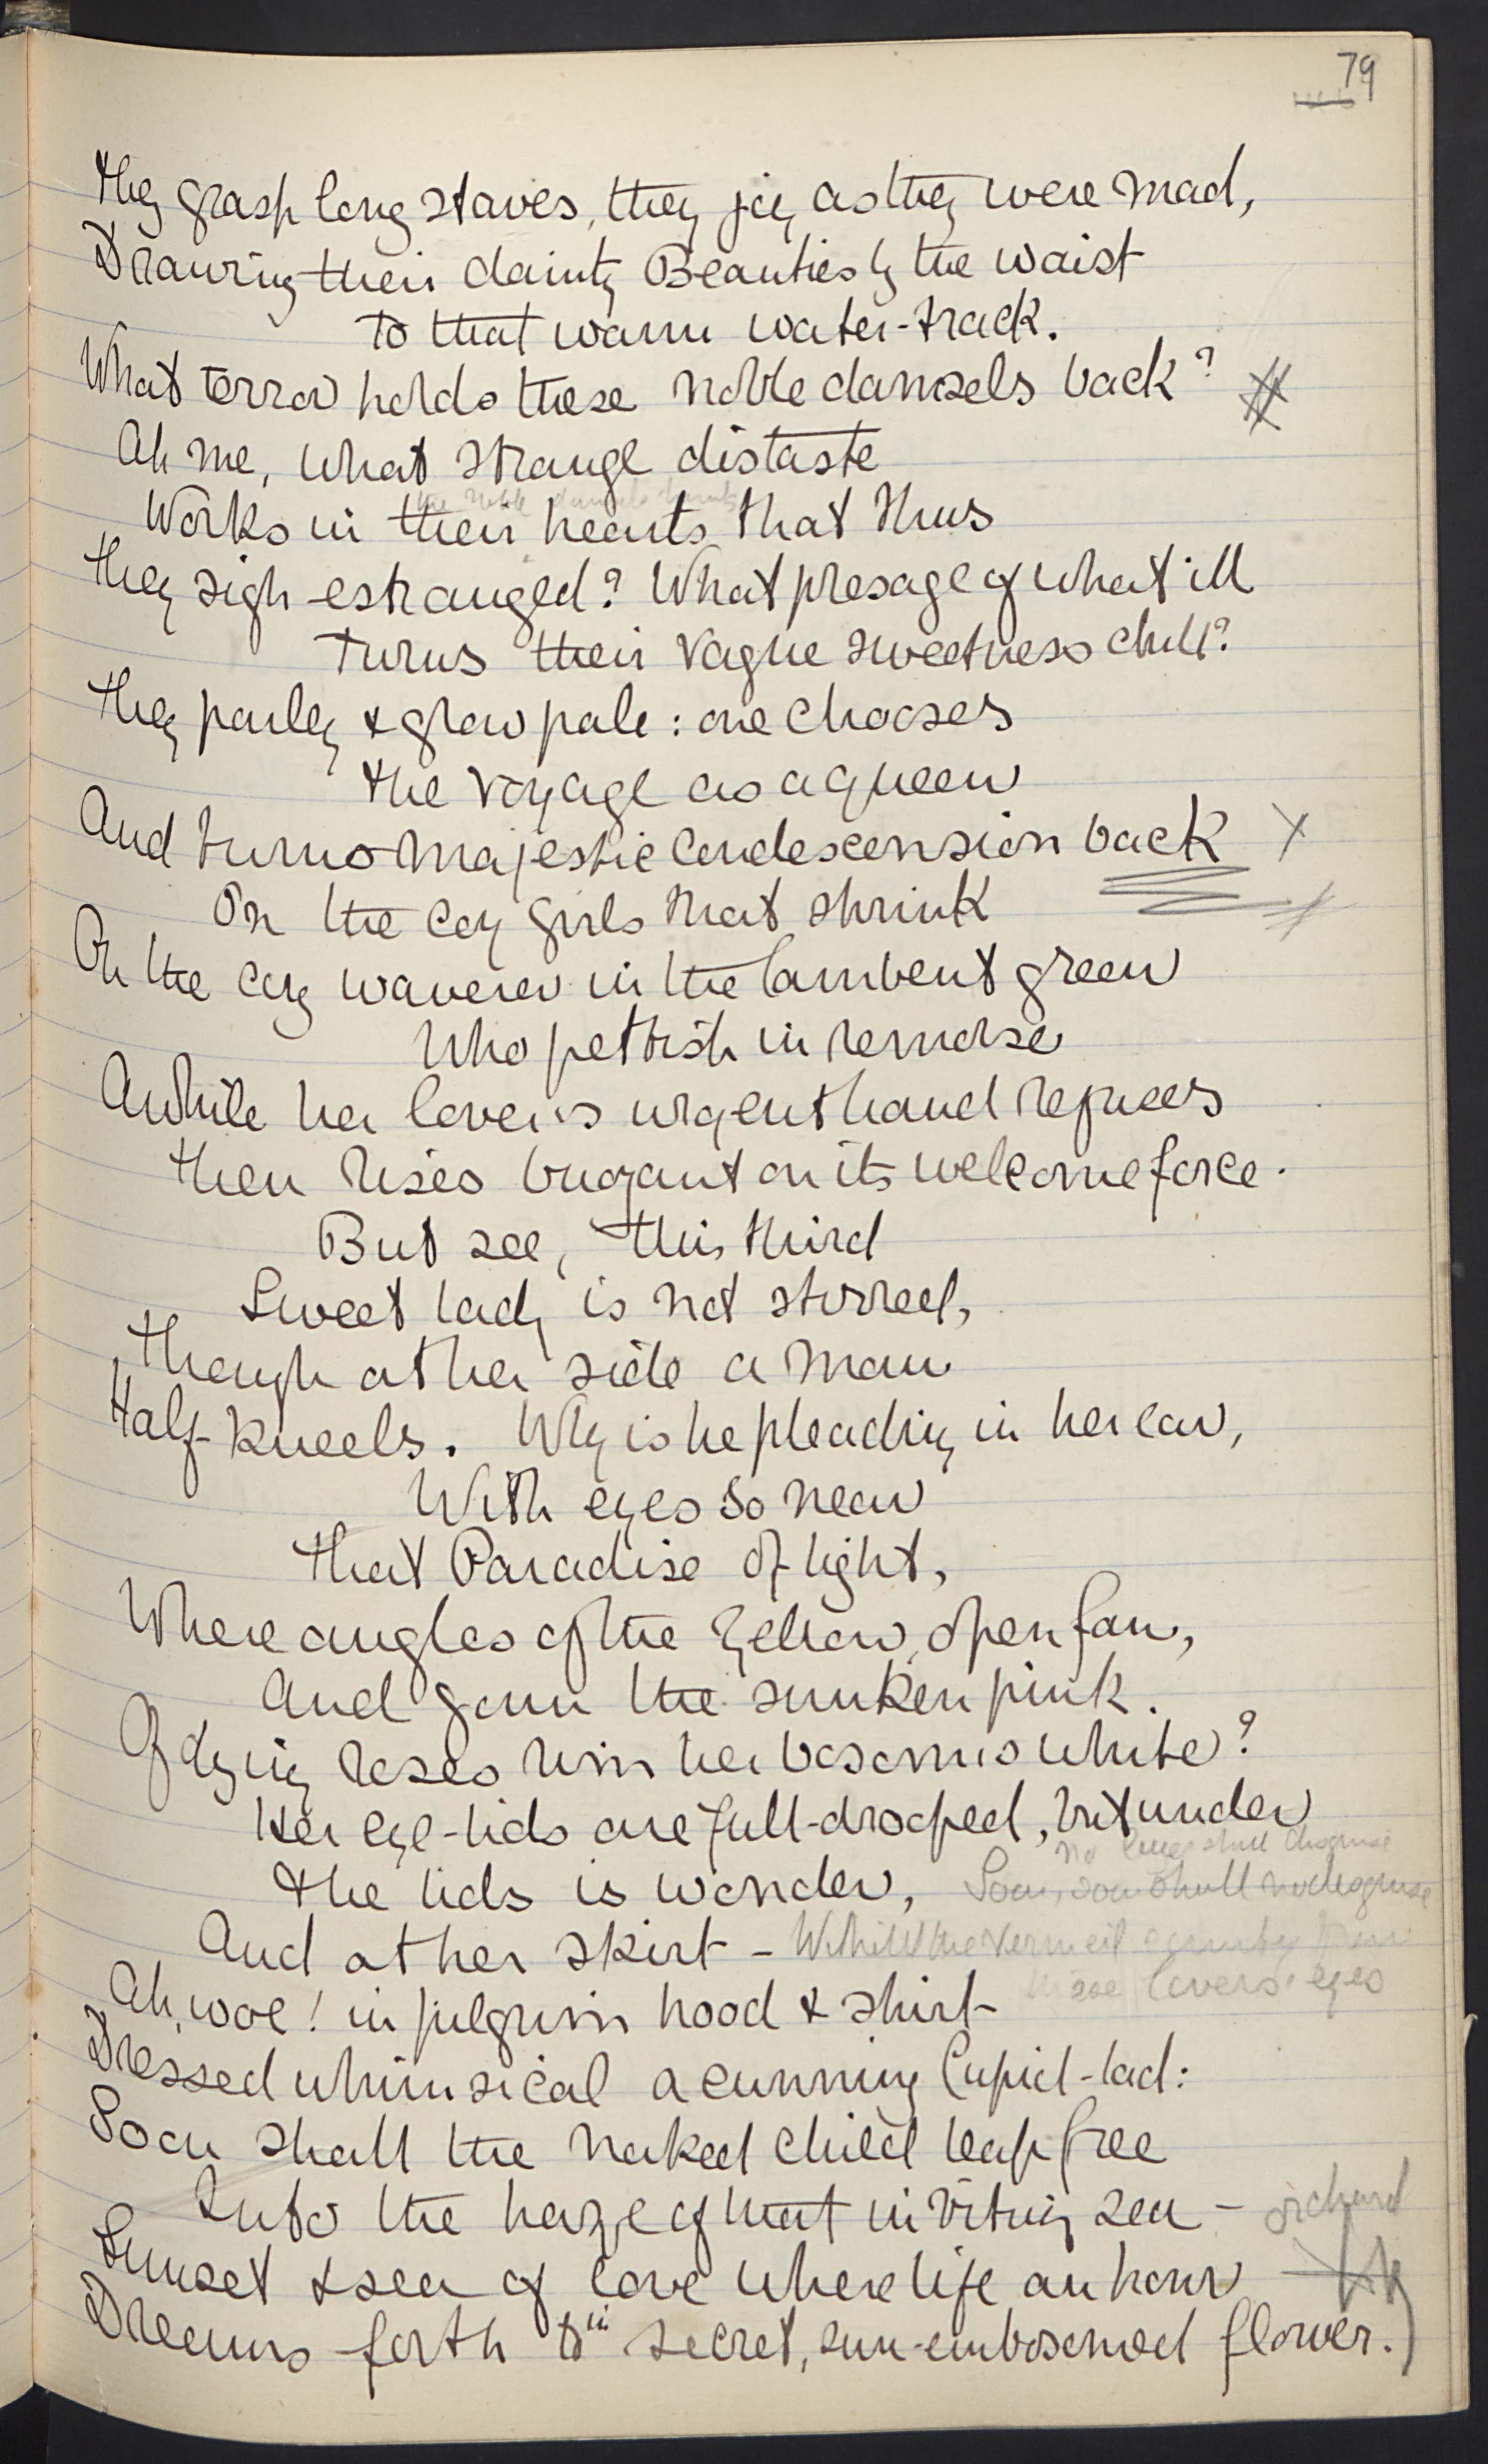 79
They grasp long staves, they joy as they were mad,
Drawing their dainty Beauties by the waist
To that warm water-track.
What terror holds these noble damsels back?
Ah me, what strange distaste
the noble damsels hearts
Works in their hearts that thus
They sigh estranged? What presage of what ill
Turns their vague sweetness chill?
They parley & grow pale: one chooses
The voyage as a queen
And turns majestic condescension back X
On the coy girls that shrink
On the coy waverer in the lambent green
Who pettish in remorse
Awhile her lover's urgent hand refuses
Then rises buoyant on its welcome force.
But see, this third
Sweet lady is not stirred,
Though at her side a man
Half-kneels. Why is he pleading in her ear,
With eyes so near
That Paradise of light,
Where angles of the yellow, open fan,
And gown the sunken pink.
Of dying roses rim her bosom's white?
Her eye-lids are full-drooped, but under
no longer shall disguise
The lids is wonder, Soon, soon shall no disguise
And at her skirt - Withhold the vermeil from
these lovers' eyes
Ah, woe! in pilgrim hood & shirt
Dressed whimsical a cunning Cupid-lad:
Soon shall the naked child leap free
Into the haze of that inviting sea - orchard
Sunset & sea of love where life an hour
Dreams forth its secret, sun-embosomed flower.)